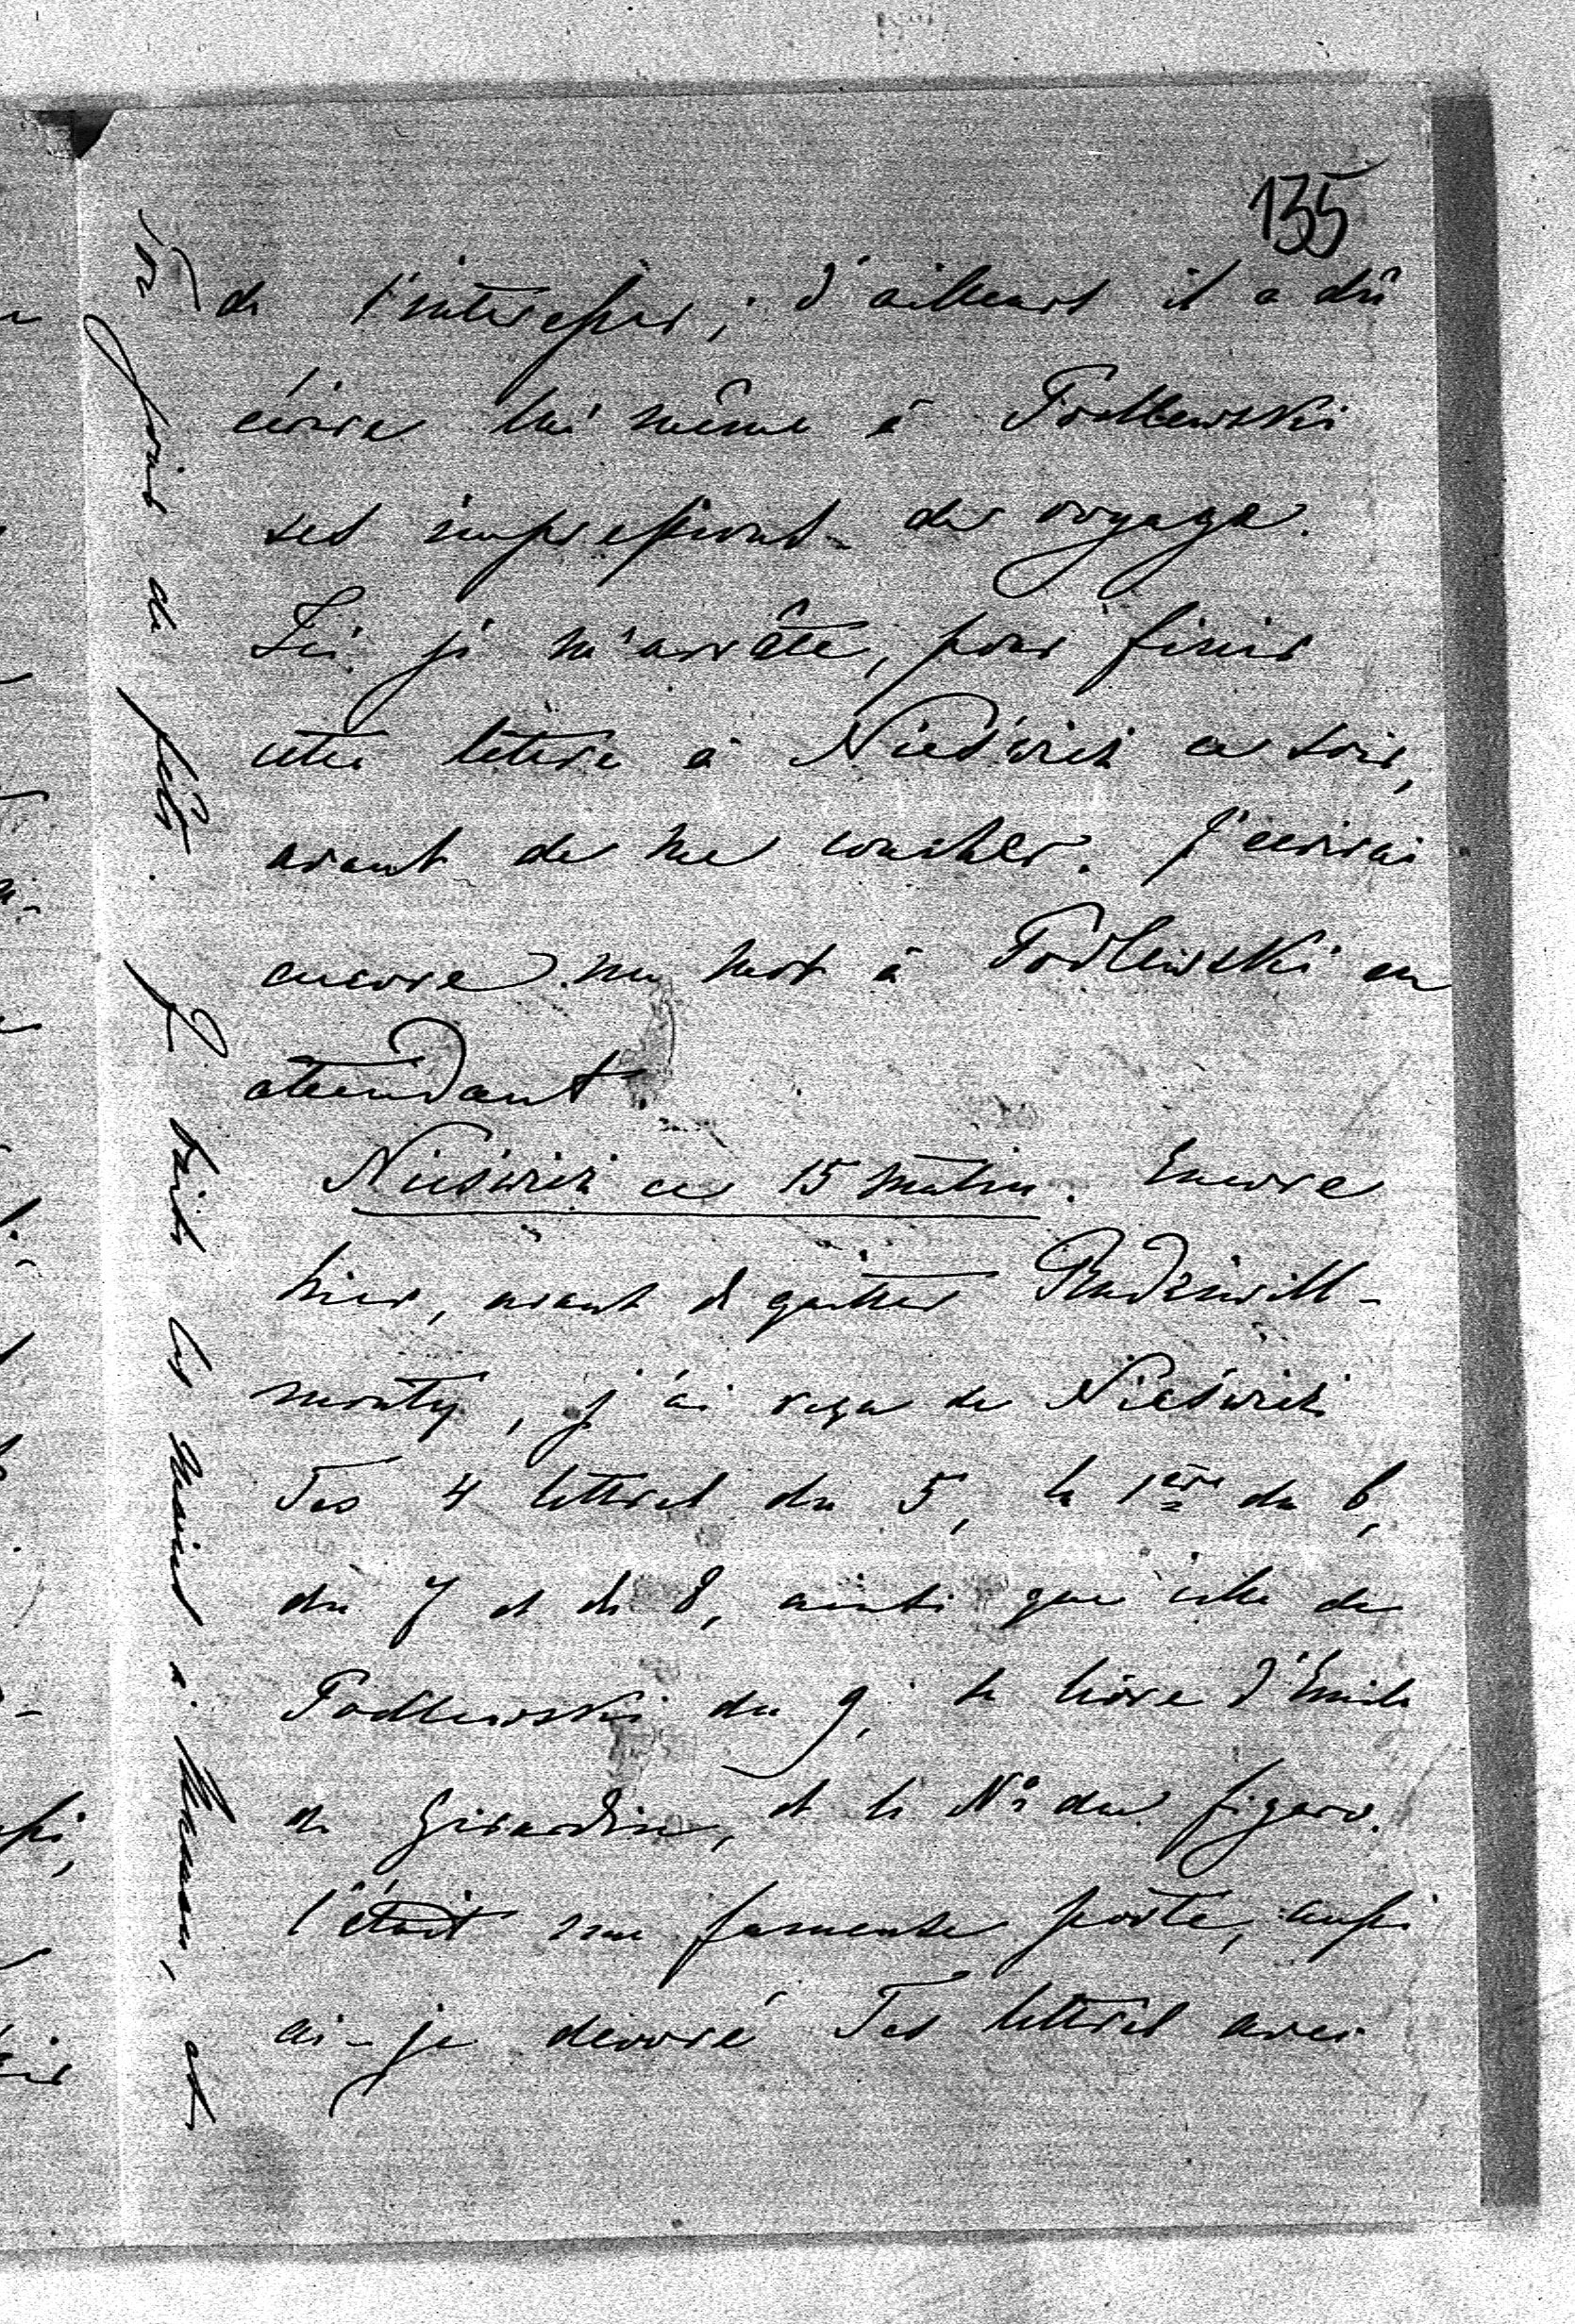 135
de t'interesser; d'ailleurs il a dû
écrire lui même à Podlewski
ses impressions de voyage.
Ici je m'arrête, pour finir
cette lettre à Nieśwież ce soir,
avant de me coucher. J'ecrirai
encore un mot à Podlewski en
attendant.
Nieśwież ce 15 matin. Encore
hier, avant de quitter Radziwill-
monty, j'ai reçu de Nieśwież
Tes 4 lettres du 5, la 1ère du 6,
du 7 et du 8, ainsi que celle de
Podlewski du 9, le livre d'Emile
de Girardin, et le No du figaro.
C'était une fameuse poste, aussi
ai-je devoré Tes lettres avec
de
petits. Je baise les mains à Maman, et